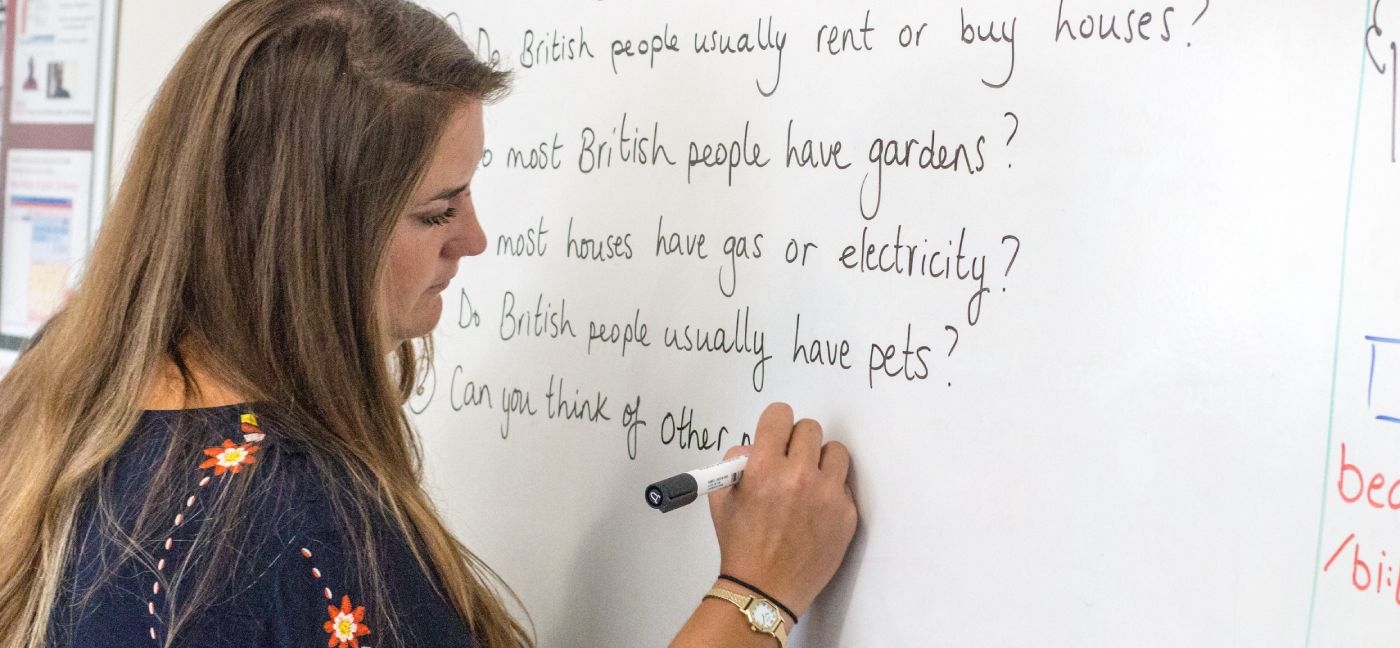 Do British people usually rent or buy houses?
most British people have gardens?
most houses have gas or electricity?
Do British people usually have pets?
Can you think of other